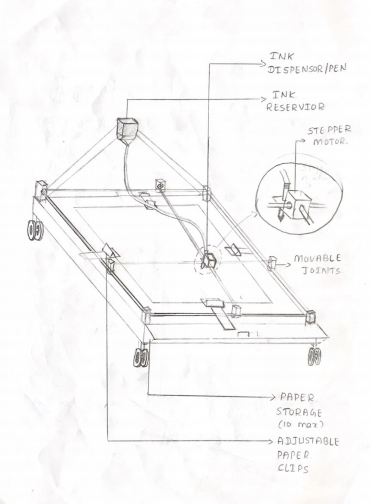 INK
DISPENSOR/PEN
INK
RESERVIOR
STEPPER
MOTOR.
MOVABLE
JOINTS
PAPER
STORAGE
(10 max)
ADJUSTABLE
PAPER
CLIPS